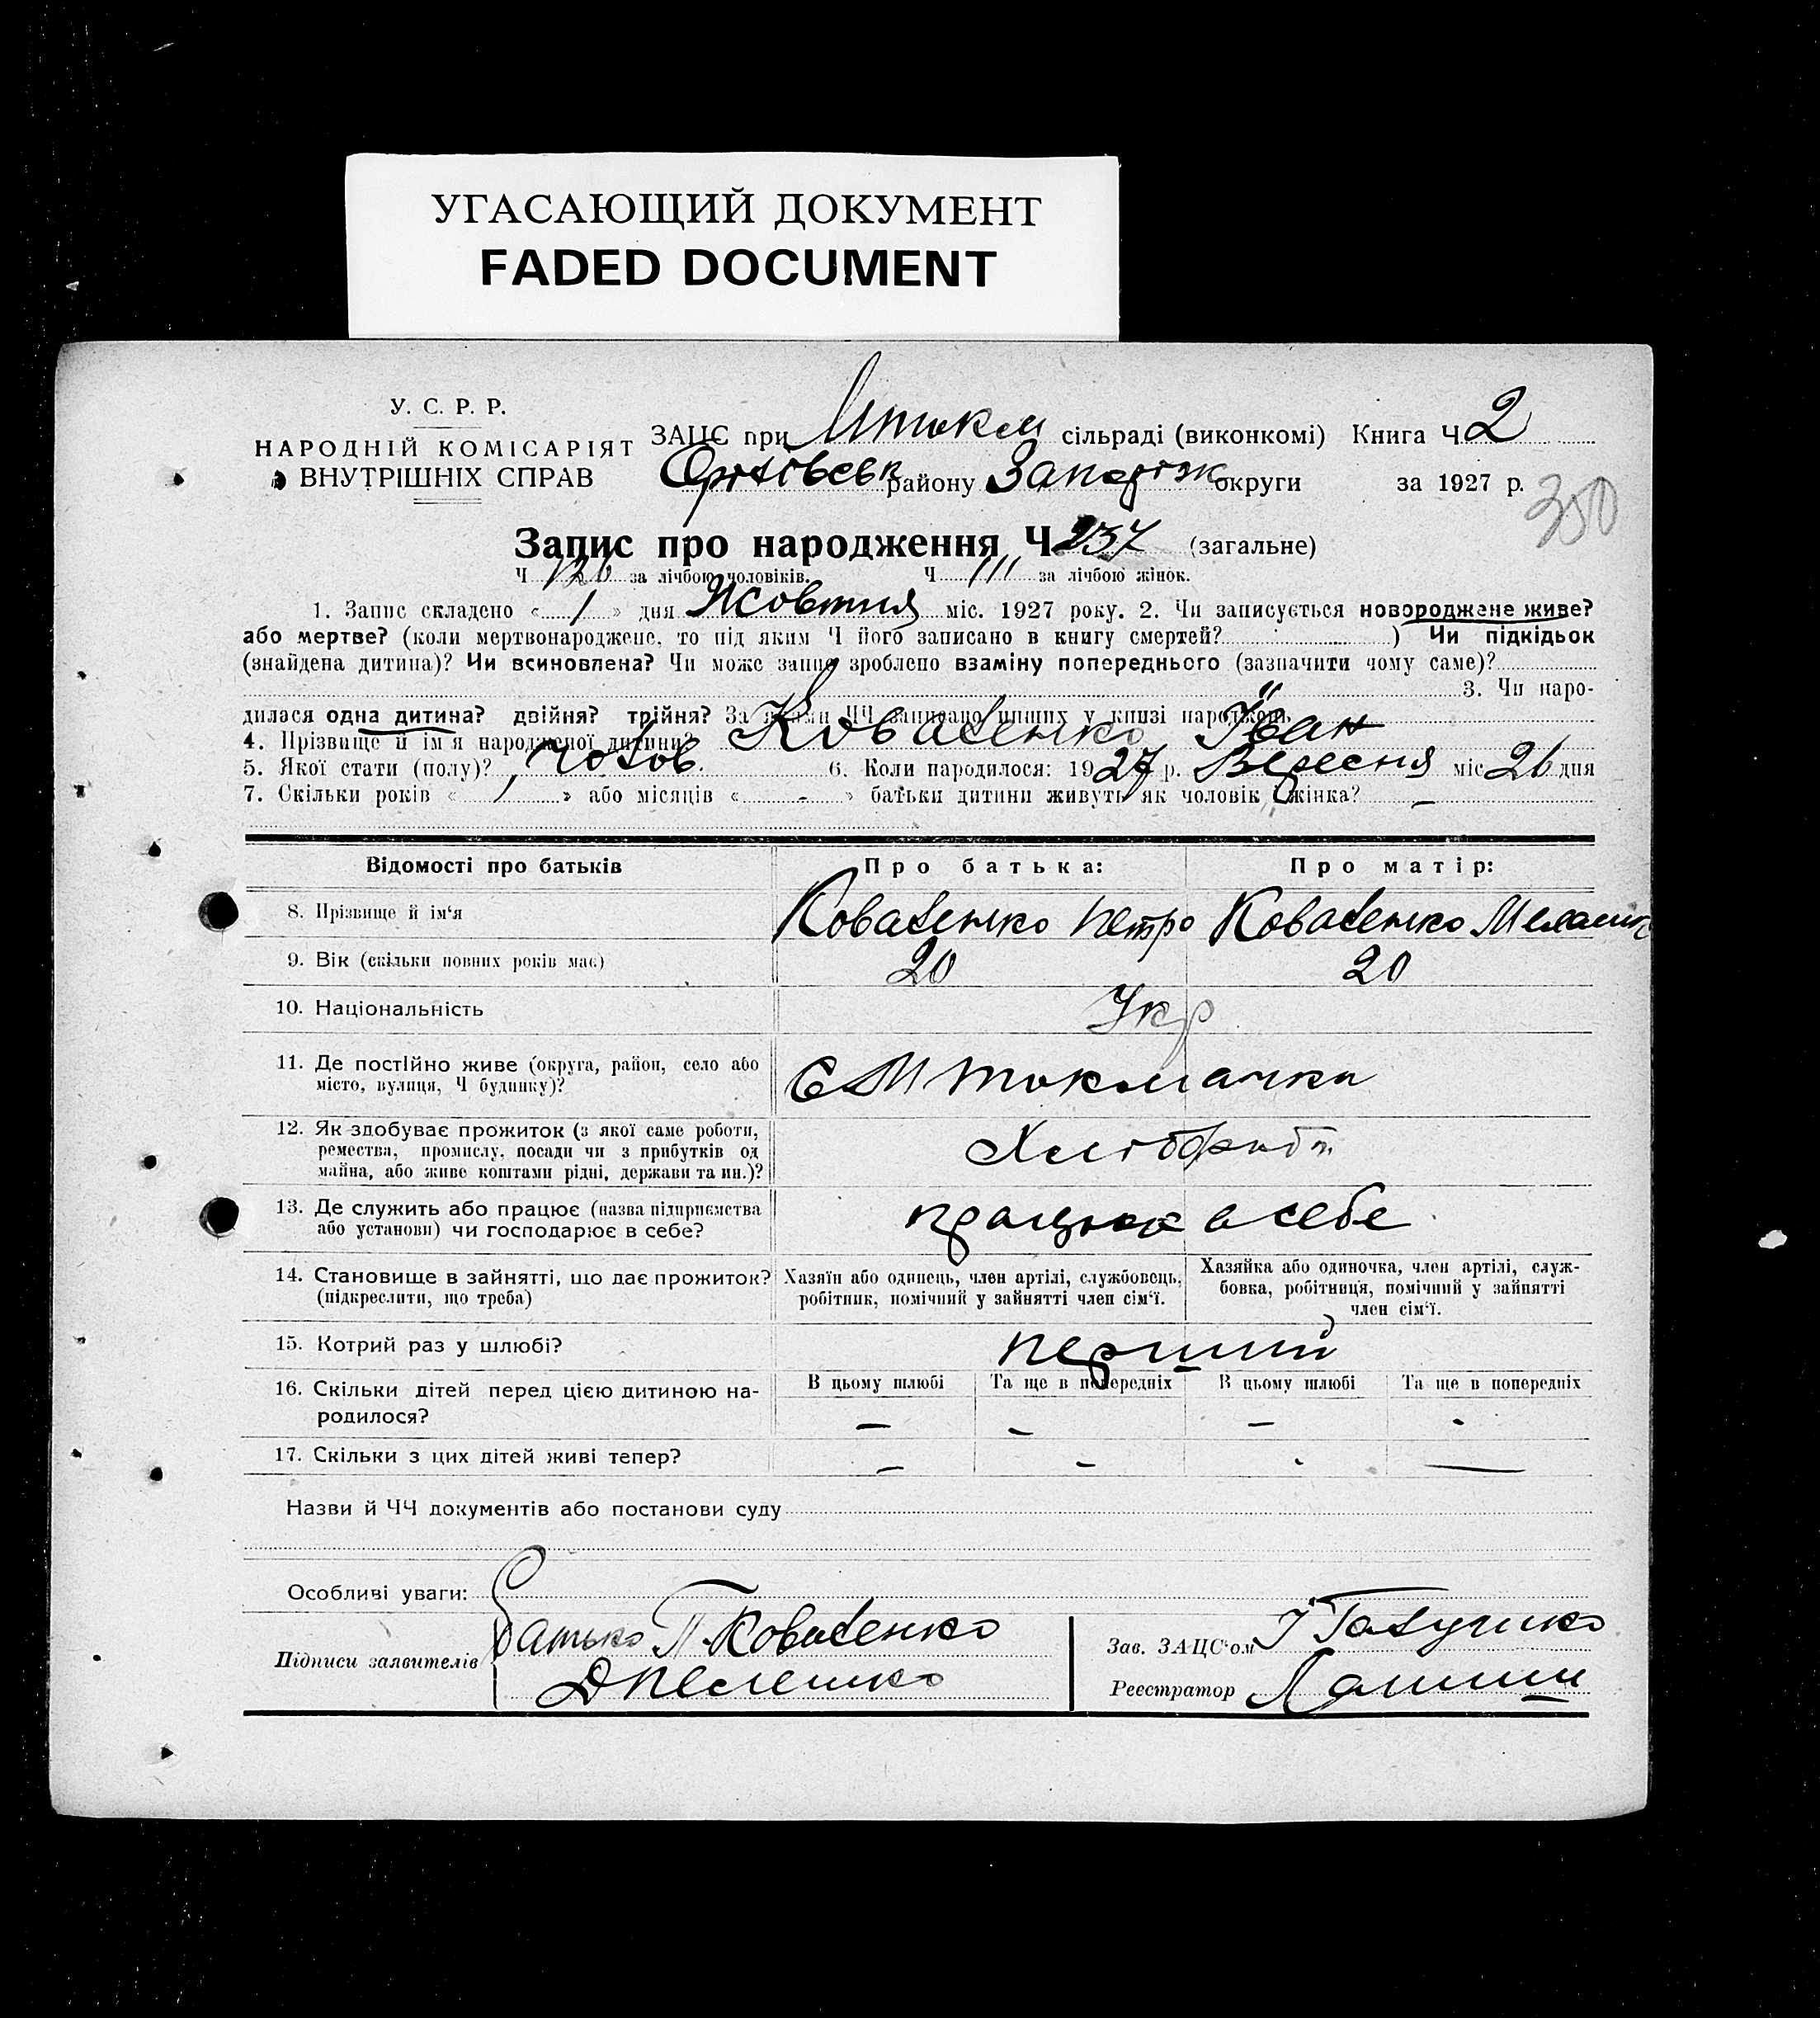 УГАСАЮЩИЙ ДОКУМЕНТ
FADED DOCUMENT
У. С. Р. Р.
НАРОДНІЙ КОМІСАРІЯТ
ВНУТРІШНІХ СПРАВ
ЗАЦС при Мтокм сільраді (виконкомі) Книга Ч 2
Оріхівськ району Запоріж округи за 1927 р.
350
Запис про народження Ч 237 (загальне)
Ч 126 за лічбою чоловіків. Ч 111 за лічбою жінок.
1. Запис складено « 1 » дня Жовтня міс. 1927 року. 2. Чи записується новороджене живе?
або мертве? (коли мертвонароджене, то під яким Ч його записано в книгу смертей? ) Чи підкідьок
(знайдена дитина)? Чи всиновлена? Чи може запис зроблено взаміну попереднього (зазначити чому саме)?
3. Чи наро-
дилася одна дитина? двійня? трійня? За якими ЧЧ записано инших у книзі народжень
4. Прізвище й ім'я народженої дитини? Коваленко Іван
5. Якої стати (полу)? чолов. 6. Коли народилося: 1927 р. Вересня міс 26 дня
7. Скільки років « 1 » або місяців « - » батьки дитини живуть як чоловік і жінка? –
Відомості про батьків Про батька: Про матір:
8. Прізвище й ім'я Коваленко Петро Коваленко
9. Вік (скільки повних років має) 20 20
10. Національність Укр
11. Де постійно живе (округа, район, село або
місто, вулиця, Ч будинку)?
С М токмачка
12. Як здобуває прожиток (з якої саме роботи,
ремества, промислу, посади чи з прибутків од
майна, або живе коштами рідні, держави та ин.)?
Хлібороб
13. Де служить або працює (назва підприємства
або установи) чи господарює в себе?
працює в себе
14. Становище в зайнятті, що дає прожиток?
(підкреслити, що треба)
Хазяїн або одинець, член артілі, службовець,
робітник, помічний у зайнятті член сім'ї.
Хазяйка або одиночка, член артілі, служ-
бовка, робітниця, помічний у зайнятті
член сім'ї.
15. Котрий раз у шлюбі? перший
16. Скільки дітей перед цією дитиною на-
родилося?
В цьому шлюбі Та ще в попередніх В цьому шлюбі Та ще в попередніх
– – – -
17. Скільки з цих дітей живі тепер? – - - —
Назви й ЧЧ документів або постанови суду
Особливі уваги:
Підписи заявителів
Батько П. Коваленко
Зав. ЗАЦС'ом І Галушко
Реєстратор